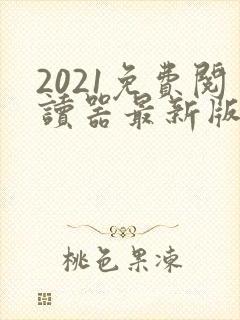 2021免費閱
讀器最新版
桃色果凍